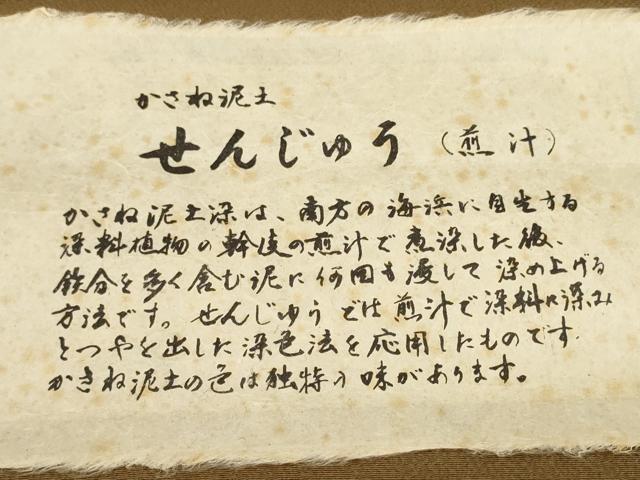 かさね泥土
せんじゅう（煎汁）
かさね泥土染は、南方の海浜に自生する
染料植物の幹皮の煎汁で煮染した後、
鉄分を多く含む泥に何回も浸して染め上げる
方法です。せんじゅうでは煎汁で染料に深み
とつやを出した染色法を応用したものです.
かさね泥土の色は独特の味があります。